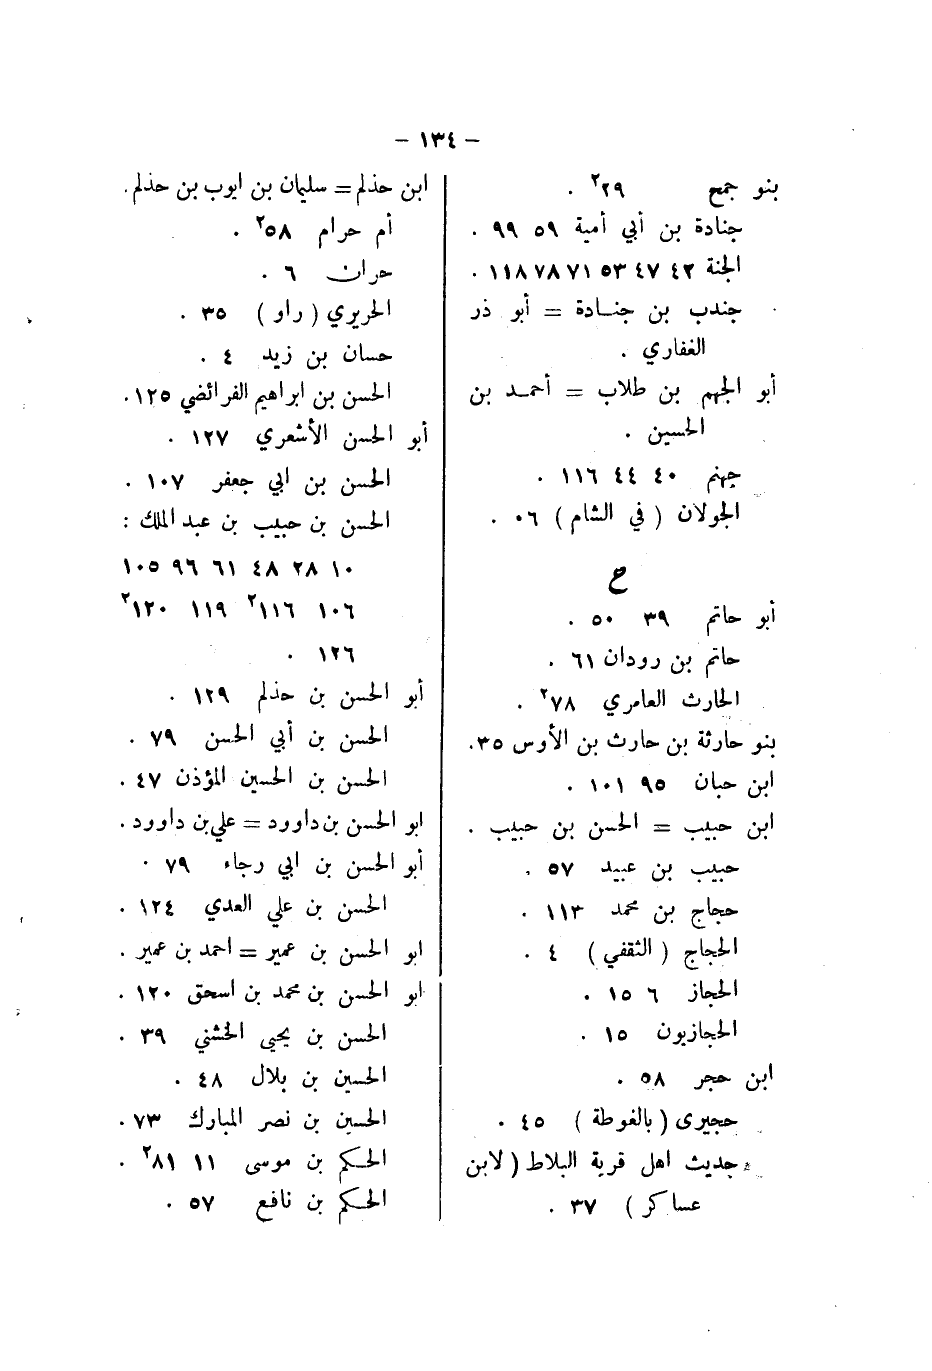 - ١٣٤ -
بنو جمح ٢٩٢ .
جنادة بن أبي أمية ٥٩ ٩٩ .
الجنة ٤٢ ٤٧ ٥٣ ٧١ ٧٨ ١١٨ .
جندب بن جنادة = أبو ذر
الغفاري .
أبو الجهم بن طلاب = أحمد بن
الحسين .
جهنم ٤٠ ٤٤ ١١٦ .
الجولان ( في الشام ) ٠٦ .
ح
أبو حاتم ٣٩ ٥٠ .
حاتم بن رودان ٦١ .
الحارث العامري ٧٨٢ .
بنو حارثة بن حارث بن الأوس ٣٥ .
ابن حبان ٩٥ ١٠١ .
ابن حبيب = الحسن بن حبيب .
حبيب بن عبيد ٥٧ .
حجاج بن محمد ١١٣ .
الحجاج ( الثقفي ) ٤ .
الحجاز ٦ ١٥ .
الحجازيون ١٥ .
ابن حجر ٥٨ .
حجيرى ( بالغوطة ) ٤٥ .
حديث اهل قرية البلاط ( لابن
عساكر ) ٣٧ .
ابن حذلم = سليمان بن ايوب بن حذلم .
أم حرام ٥٨٢ .
حران ٦ .
الحريري ( راو ) ٣٥ .
حسان بن زيد ٤ .
الحسن بن ابراهيم الفرائضي ١٢٥ .
أبو الحسن الأشعري ١٢٧ .
الحسن بن ابي جعفر ١٠٧ .
الحسن بن حبيب بن عبد الملك :
١٠ ٢٨ ٤٨ ٦١ ٩٦ ١٠٥
١٠٦ ١١٦٢ ١١٩ ١٢٠٢
١٢٦ .
أبو الحسن بن حذلم ١٢٩ .
الحسن بن أبي الحسن ٧٩ .
الحسن بن الحسين المؤذن ٤٧ .
ابو الحسن بن داوود = علي بن داوود .
أبو الحسن بن ابي رجاء ٧٩ .
الحسن بن علي العدي ١٢٤ .
ابو الحسن بن عمير = احمد بن عمير .
ابو الحسن بن محمد بن اسحق ١٢٠ .
الحسن بن يحيى الخشني ٣٩ .
الحسين بن بلال ٤٨ .
الحسين بن نصر المبارك ٧٣ .
الحكم بن موسى ١١ ٨١٢ .
الحكم بن نافع ٥٧ .